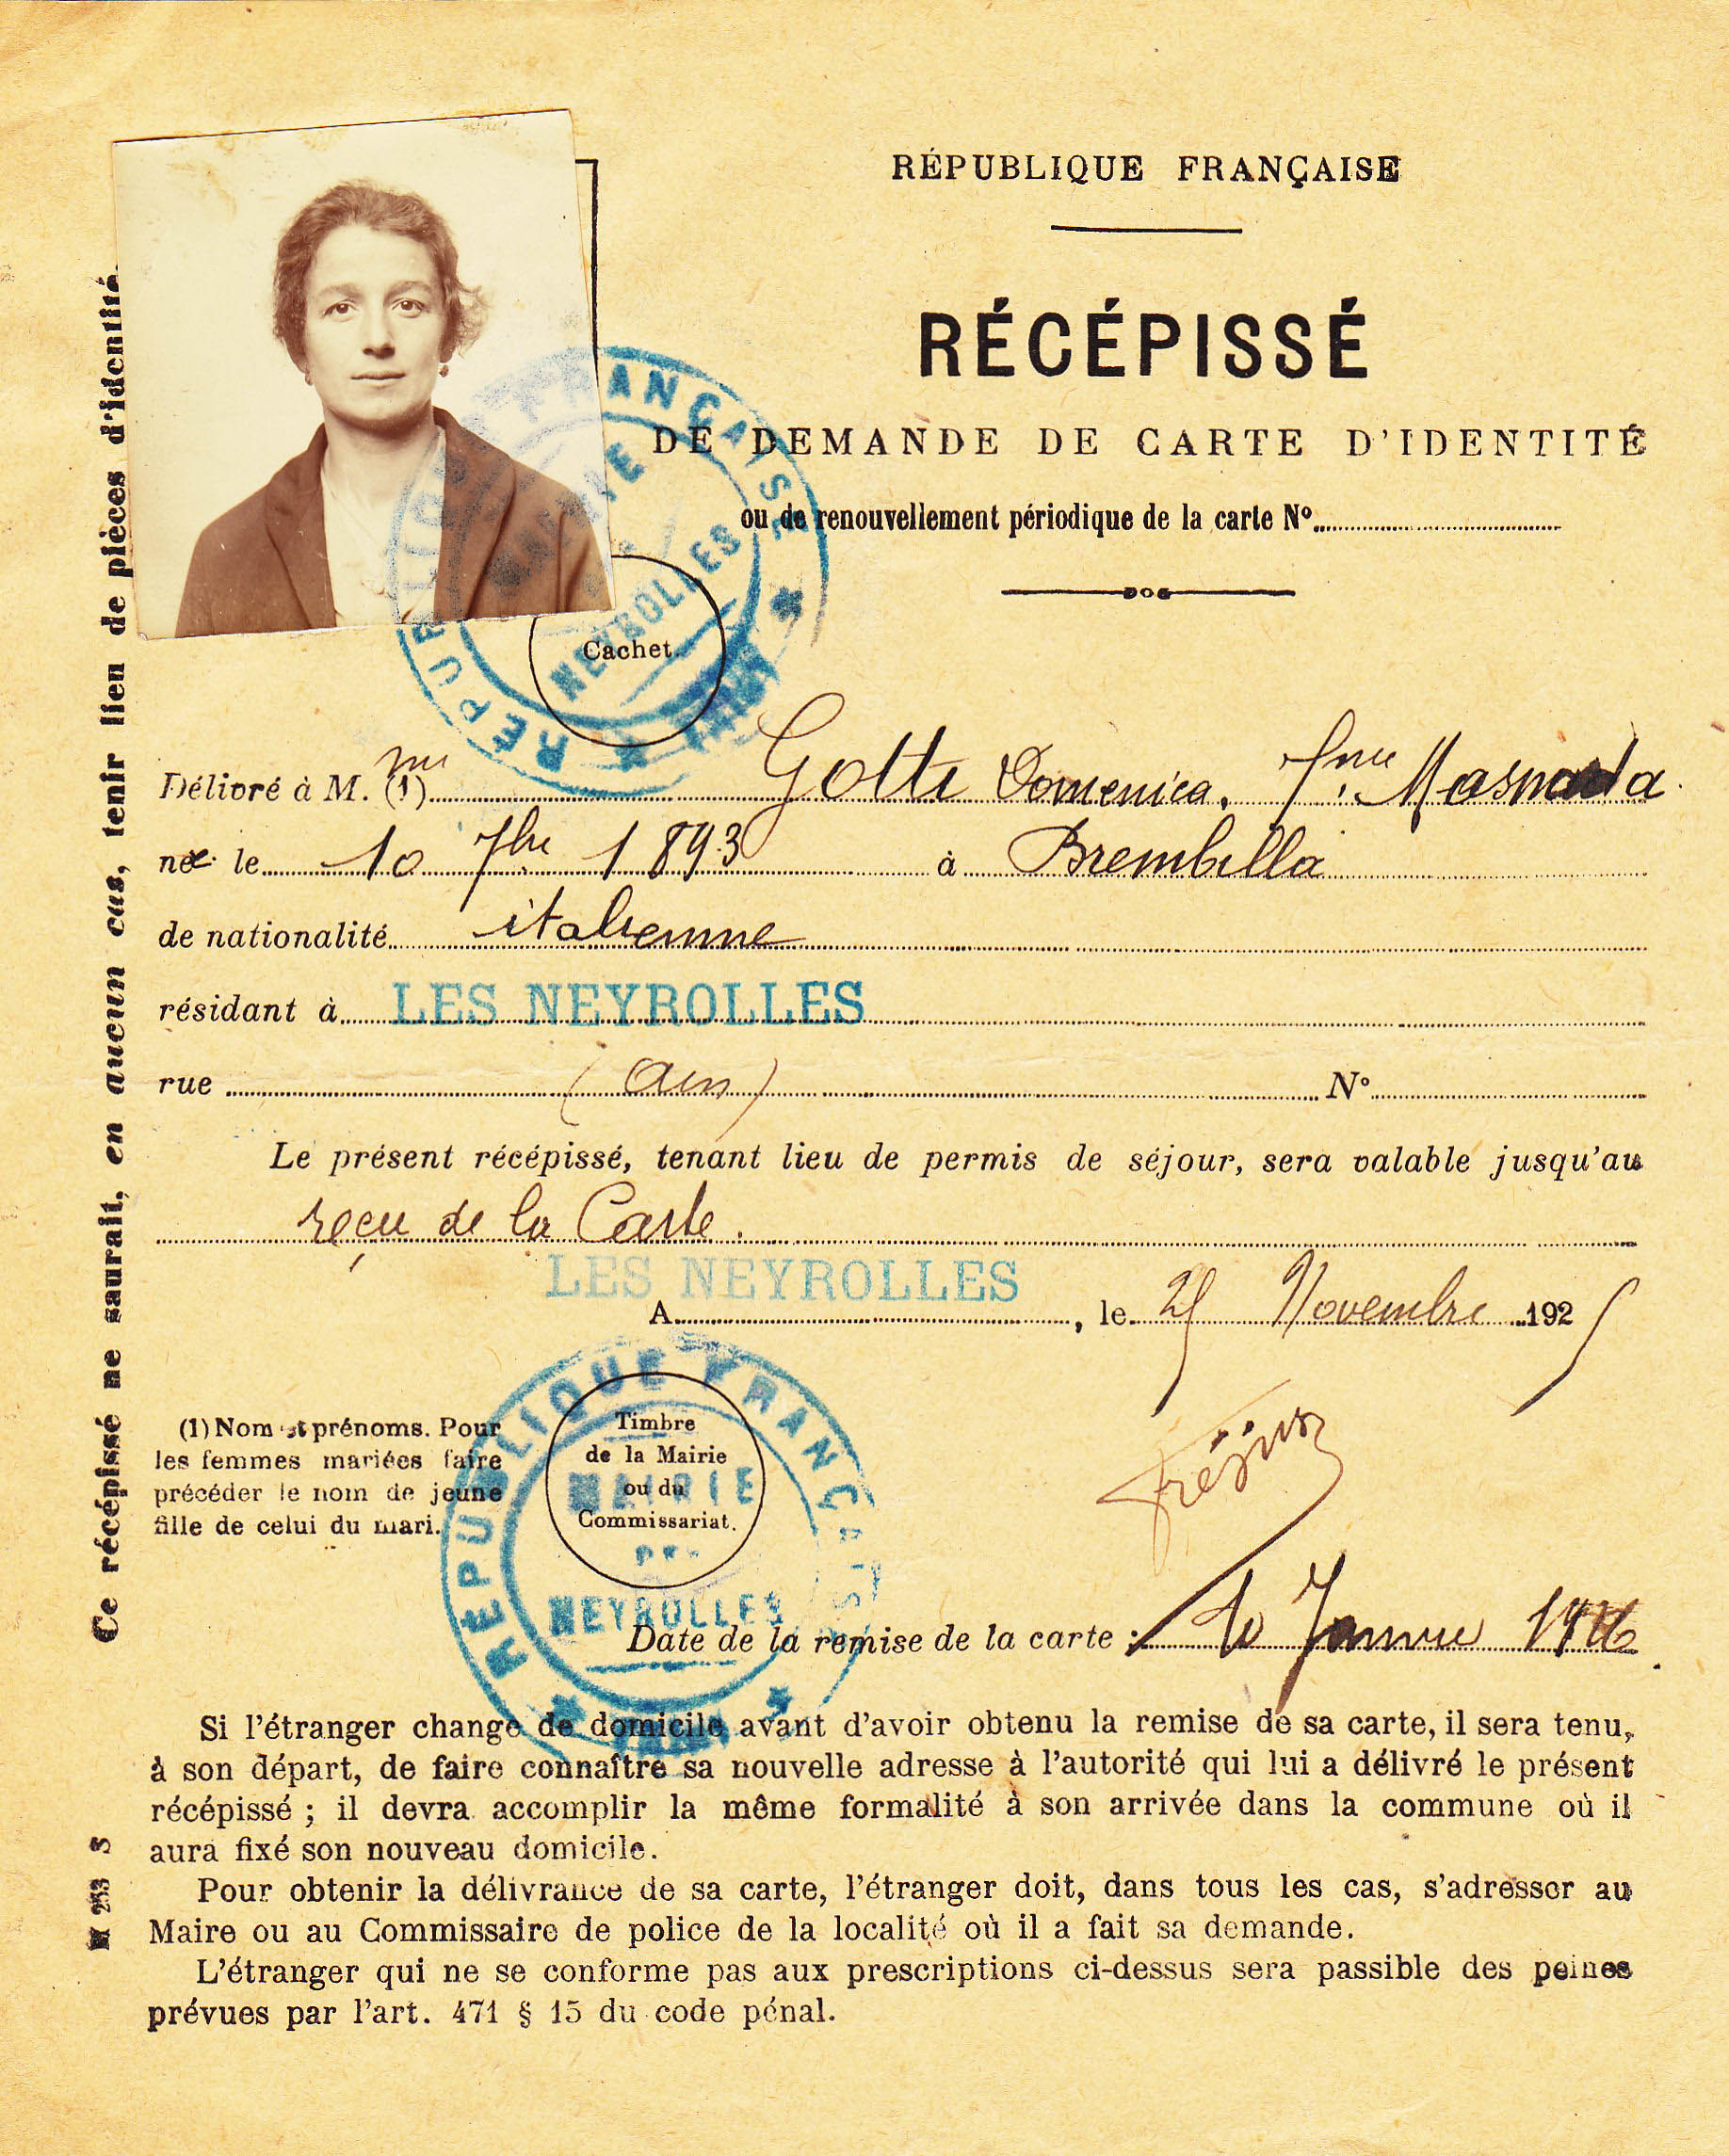 RÉPUBLIQUE FRANÇAISE
RÉCÉPISSÉ
DE DEMANDE DE CARTE D'IDENTITÉ
ou de renouvellement périodique de la carte N°
RÉPUBLIQUE FRANÇAISE
MAIRIE
NEYROLLES
Cachet.
Délivré à M. me (1) Gotti Domenica, fme Masnada
née le 10 7bre 1893 à Brembilla
de nationalité italienne
résidant à LES NEYROLLES
rue (Ain) N°
Le présent récépissé, tenant lieu de permis de séjour, sera valable jusqu'au
reçu de la Carte.
LES NEYROLLES
A , le 25 Novembre 1925
(1) Nom et prénoms. Pour
les femmes mariées faire
précéder le nom de jeune
fille de celui du mari.
RÉPUBLIQUE FRANÇAISE
MAIRIE
NEYROLLES
Timbre
de la Mairie
ou du
Commissariat.
Date de la remise de la carte : 10 Janvier 1926
Si l'étranger change de domicile avant d'avoir obtenu la remise de sa carte, il sera tenu,
à son départ, de faire connaître sa nouvelle adresse à l'autorité qui lui a délivré le présent
récépissé ; il devra accomplir la même formalité à son arrivée dans la commune où il
aura fixé son nouveau domicile.
Pour obtenir la délivrance de sa carte, l'étranger doit, dans tous les cas, s'adresser au
Maire ou au Commissaire de police de la localité où il a fait sa demande.
L'étranger qui ne se conforme pas aux prescriptions ci-dessus sera passible des peines
prévues par l'art. 471 § 15 du code pénal.
Ce récépissé ne saurait, en aucun cas, tenir lieu de pièces d'identité.